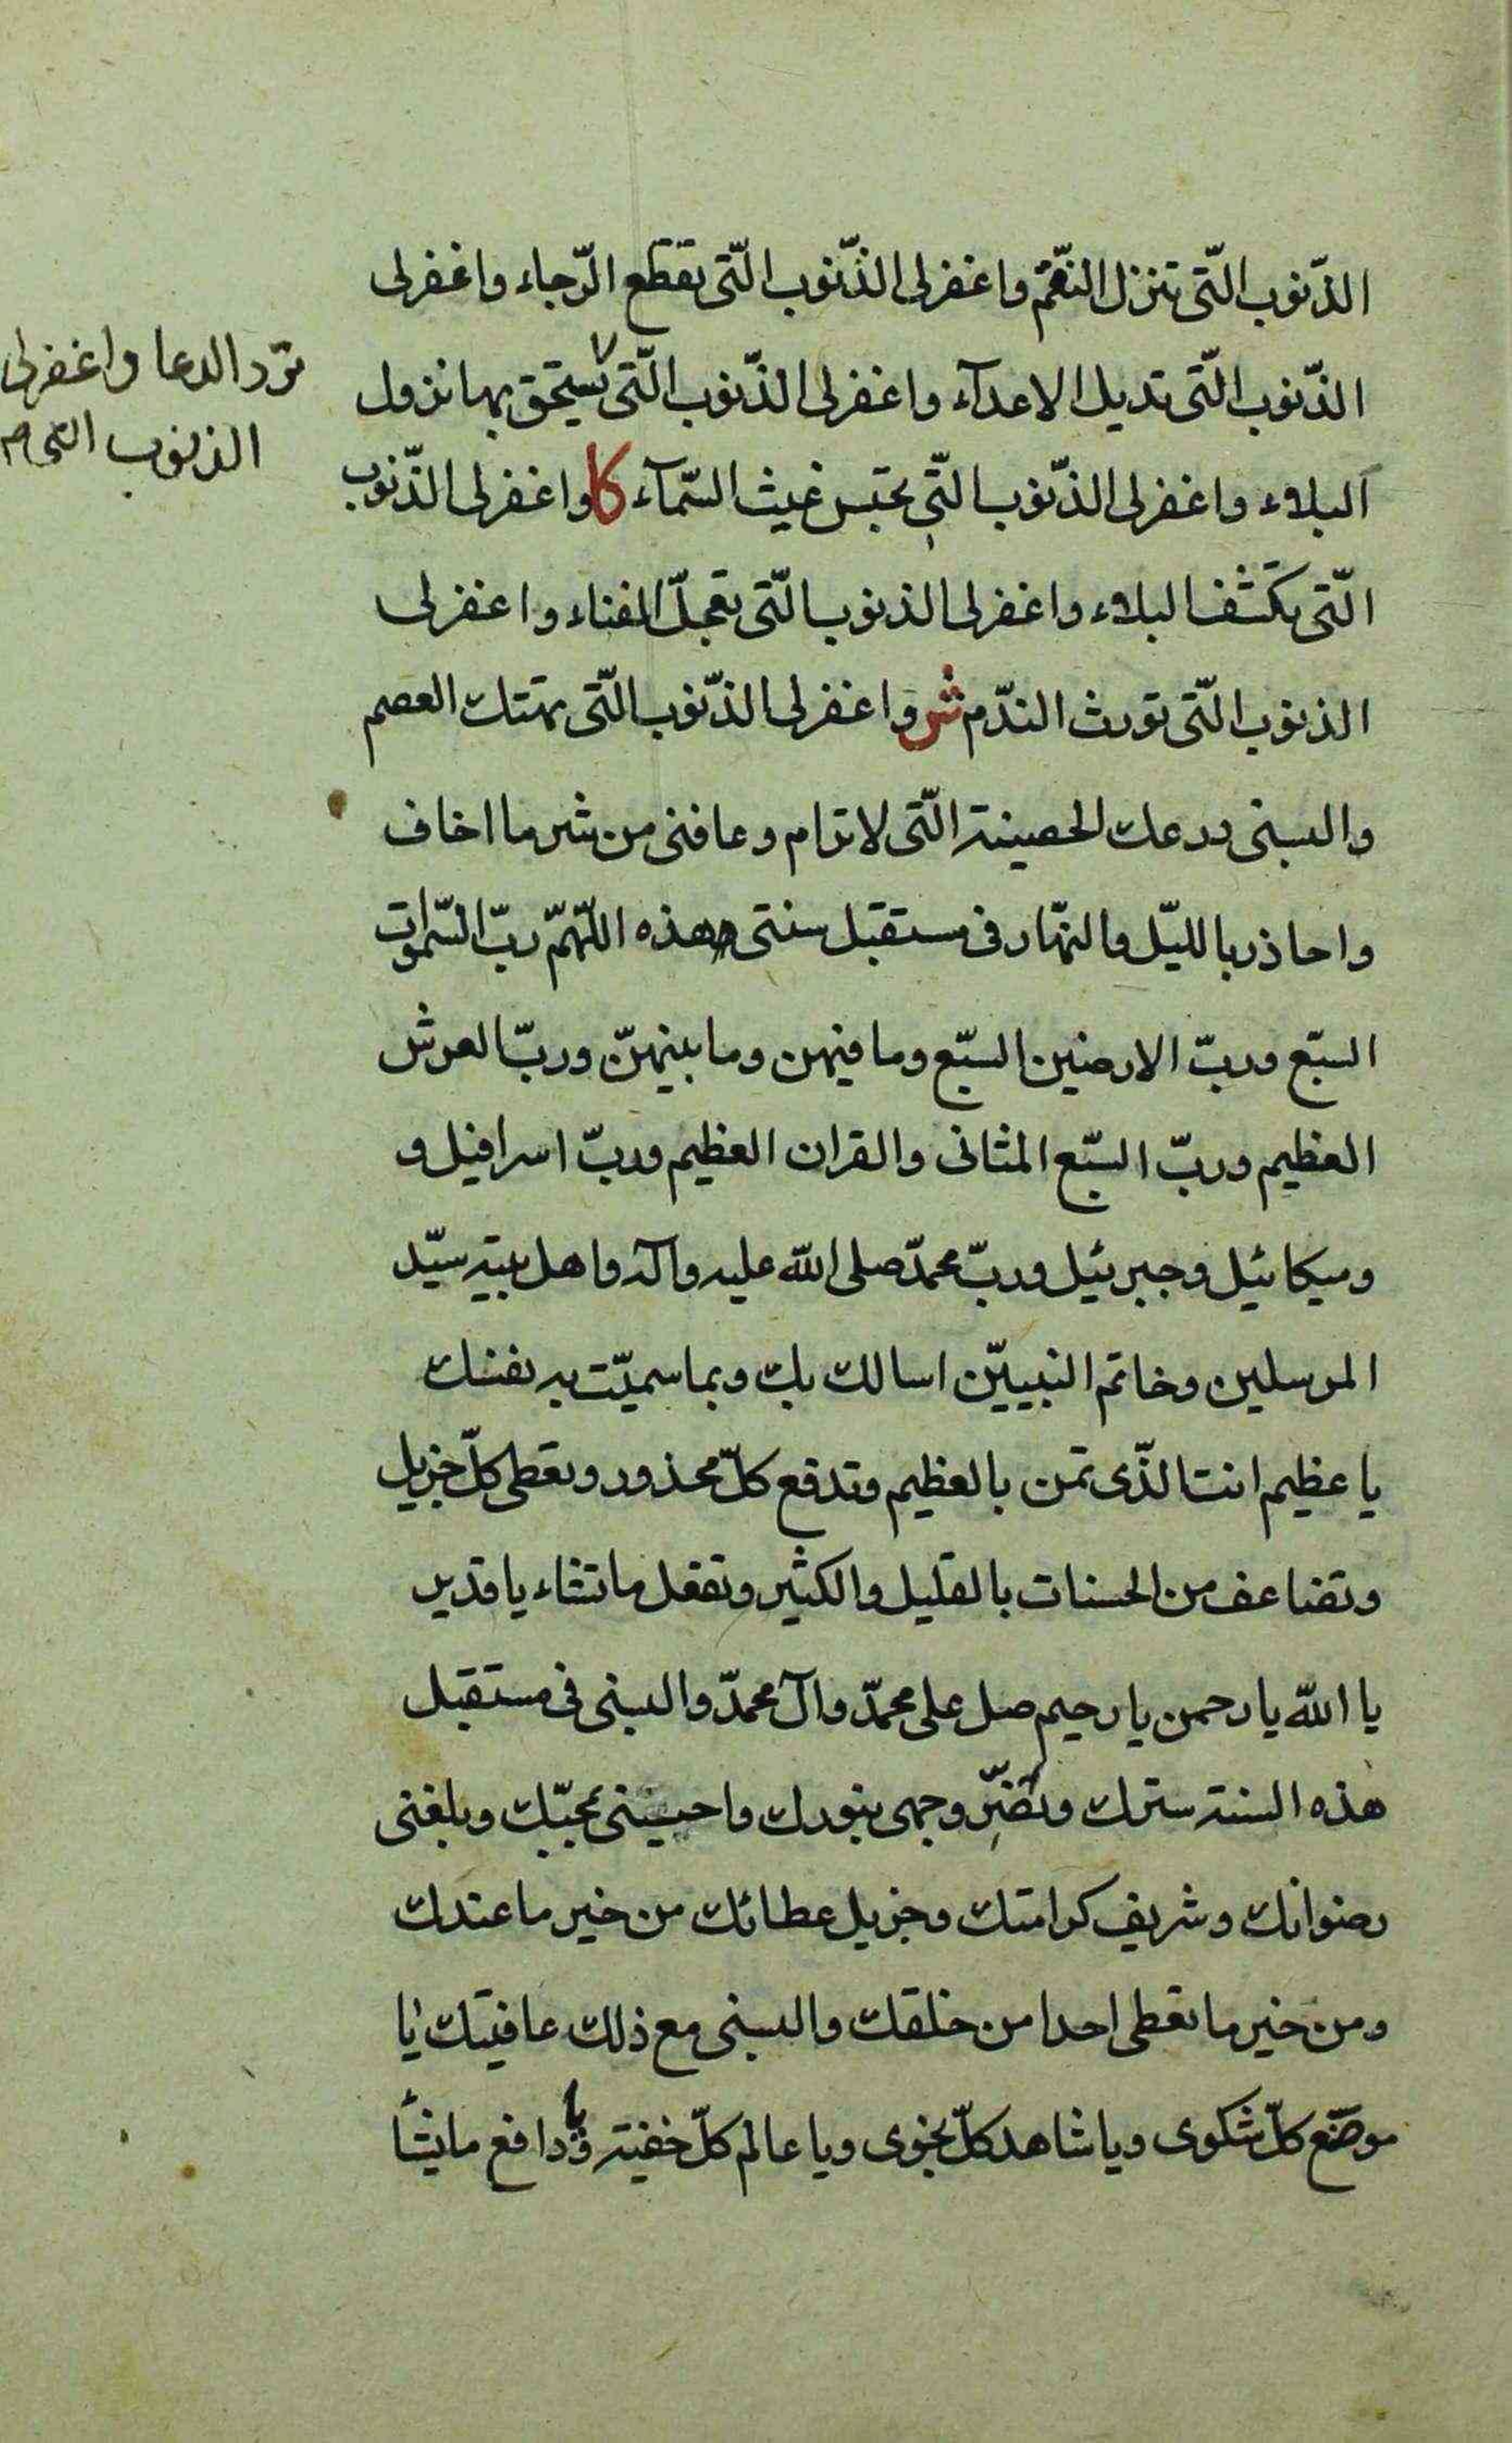 الذّنوب الّتى تنزل النّقم واغفر لى الذّنوب الّتى تقطع الرّجاء واغفر لى
الذّنوب الّتى تديل الاعدآء واغفر لى الذّنوب الّتى يستحق بها نزول
تردّ الدعا واغفر لى
الذنوب التى
البلاء واغفر لى الذّنوب الّتى تحتبس غيث السّمآء كا واغفر لى الذّنوب
الّتى تكشف البلاء واغفر لى الذنوب الّتى تعجّل الفناء واغفر لى
الذنوب الّتى تورث الندّم ش واغفر لى الذّنوب الّتى تهتك العصم
والبسنى درعك الحصينة الّتى لا ترام وعافنى من شر ما اخاف
واحاذر بالليّل والنهّار فى مستقبل سنتى هذه اللّهمّ ربّ السّموات
السبّع وربّ الارضين السبّع وما فيهن وما بينهنّ وربّ العرش
العظيم وربّ السبّع المثانى والقران العظيم وربّ اسرافيل و
وميكائيل وجبرئيل وربّ محمدّ صلى الله عليه وآله واهل بيته سيّد
المرسلين وخاتم النبييّن اسالك بك وبما سميّت به نفسك
يا عظيم انت الذّى تمن بالعظيم وتدفع كلّ محذور وتعطى كلّ جزيل
وتضاعف من الحسنات بالقليل والكثير وتفعل ما تشاء يا قدير
يا الله يا رحمن يا رحيم صل على محمدّ وآل محمدّ والبسنى فى مستقبل
هذه السنة سترك ونضّر وجهى بنورك واحيينى بمحبّك وبلغنى
رضوانك وشريف كرامتك وجزيل عطائك من خير ما عندك
ومن خير ما تعطى احدا من خلقك والبسنى مع ذلك عافيتك يا
موضع كلّ شكوى ويا شاهد كلّ نجوى ويا عالم كلّ خفية ويا دافع ما يشأ